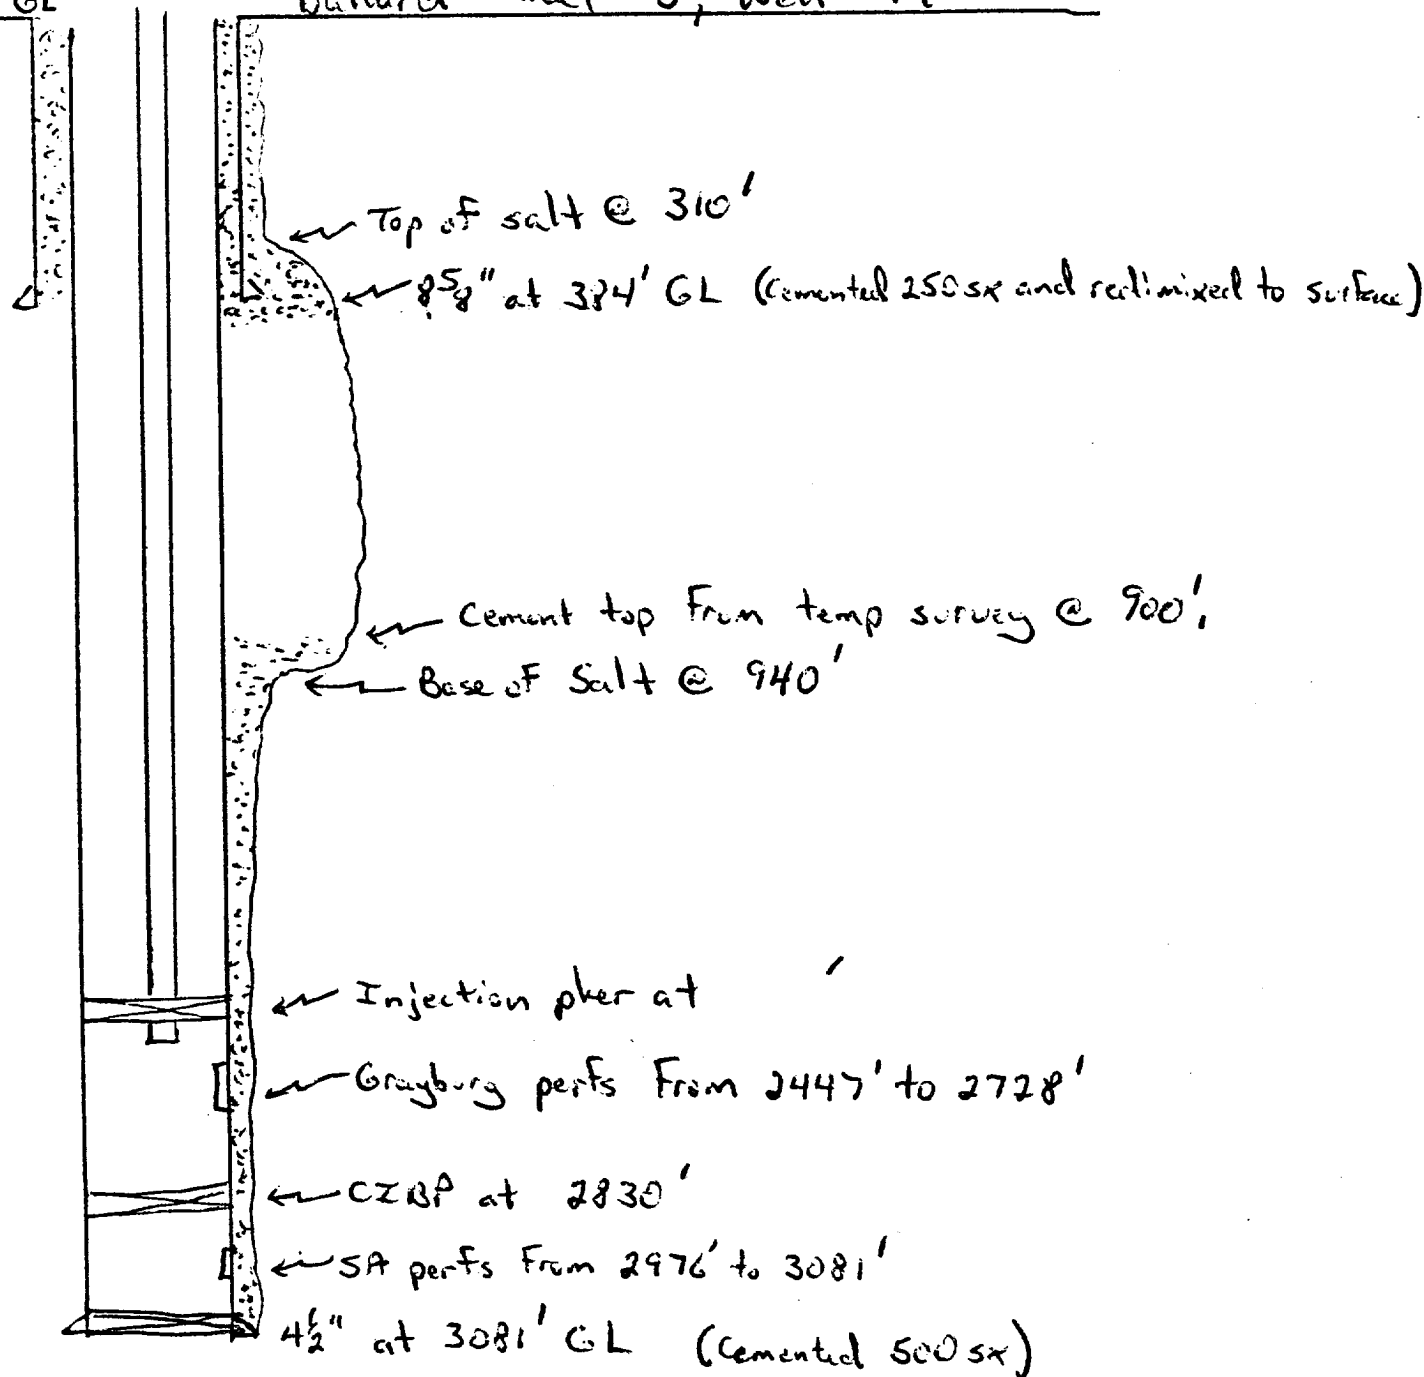 GL
Top of salt @ 310'
8 5/8" at 384' GL (Cemented 250 sx and redimixed to surface)
Cement top From temp survey @ 900'.
Base of Salt @ 940'
Injection pker at '
Grayburg perfs From 2447' to 2728'
CIBP at 2830'
SA perfs From 2976' to 3081'
4 1/2" at 3081' GL (Cemented 500 sx)